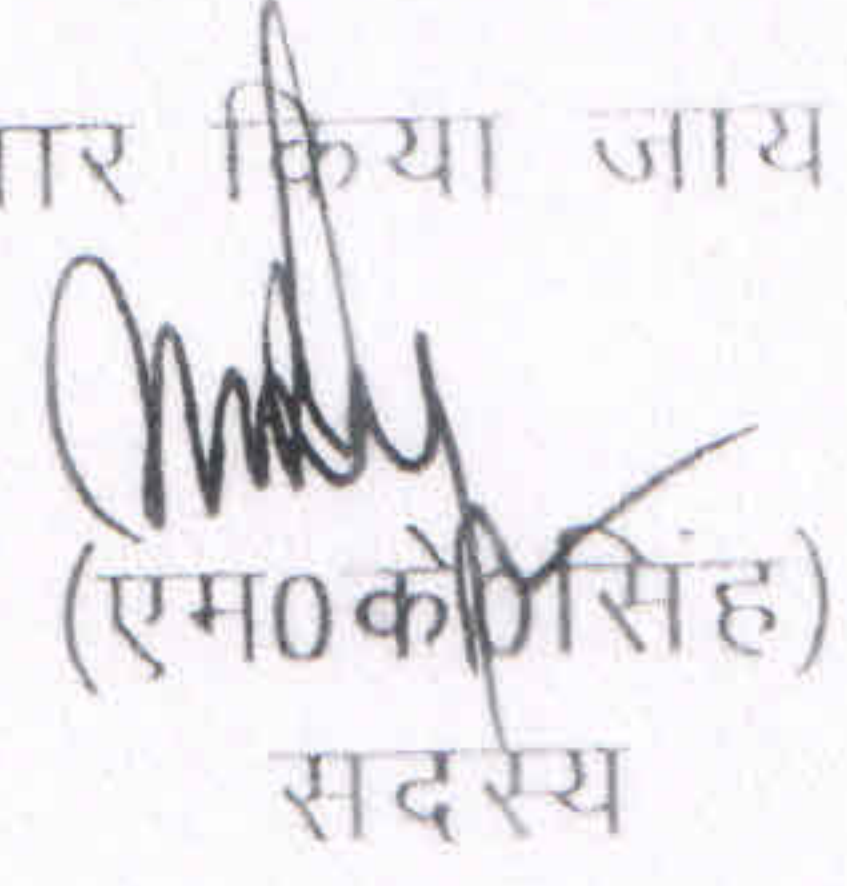 किया जाय
(एम0के0सिंह)
सदस्य